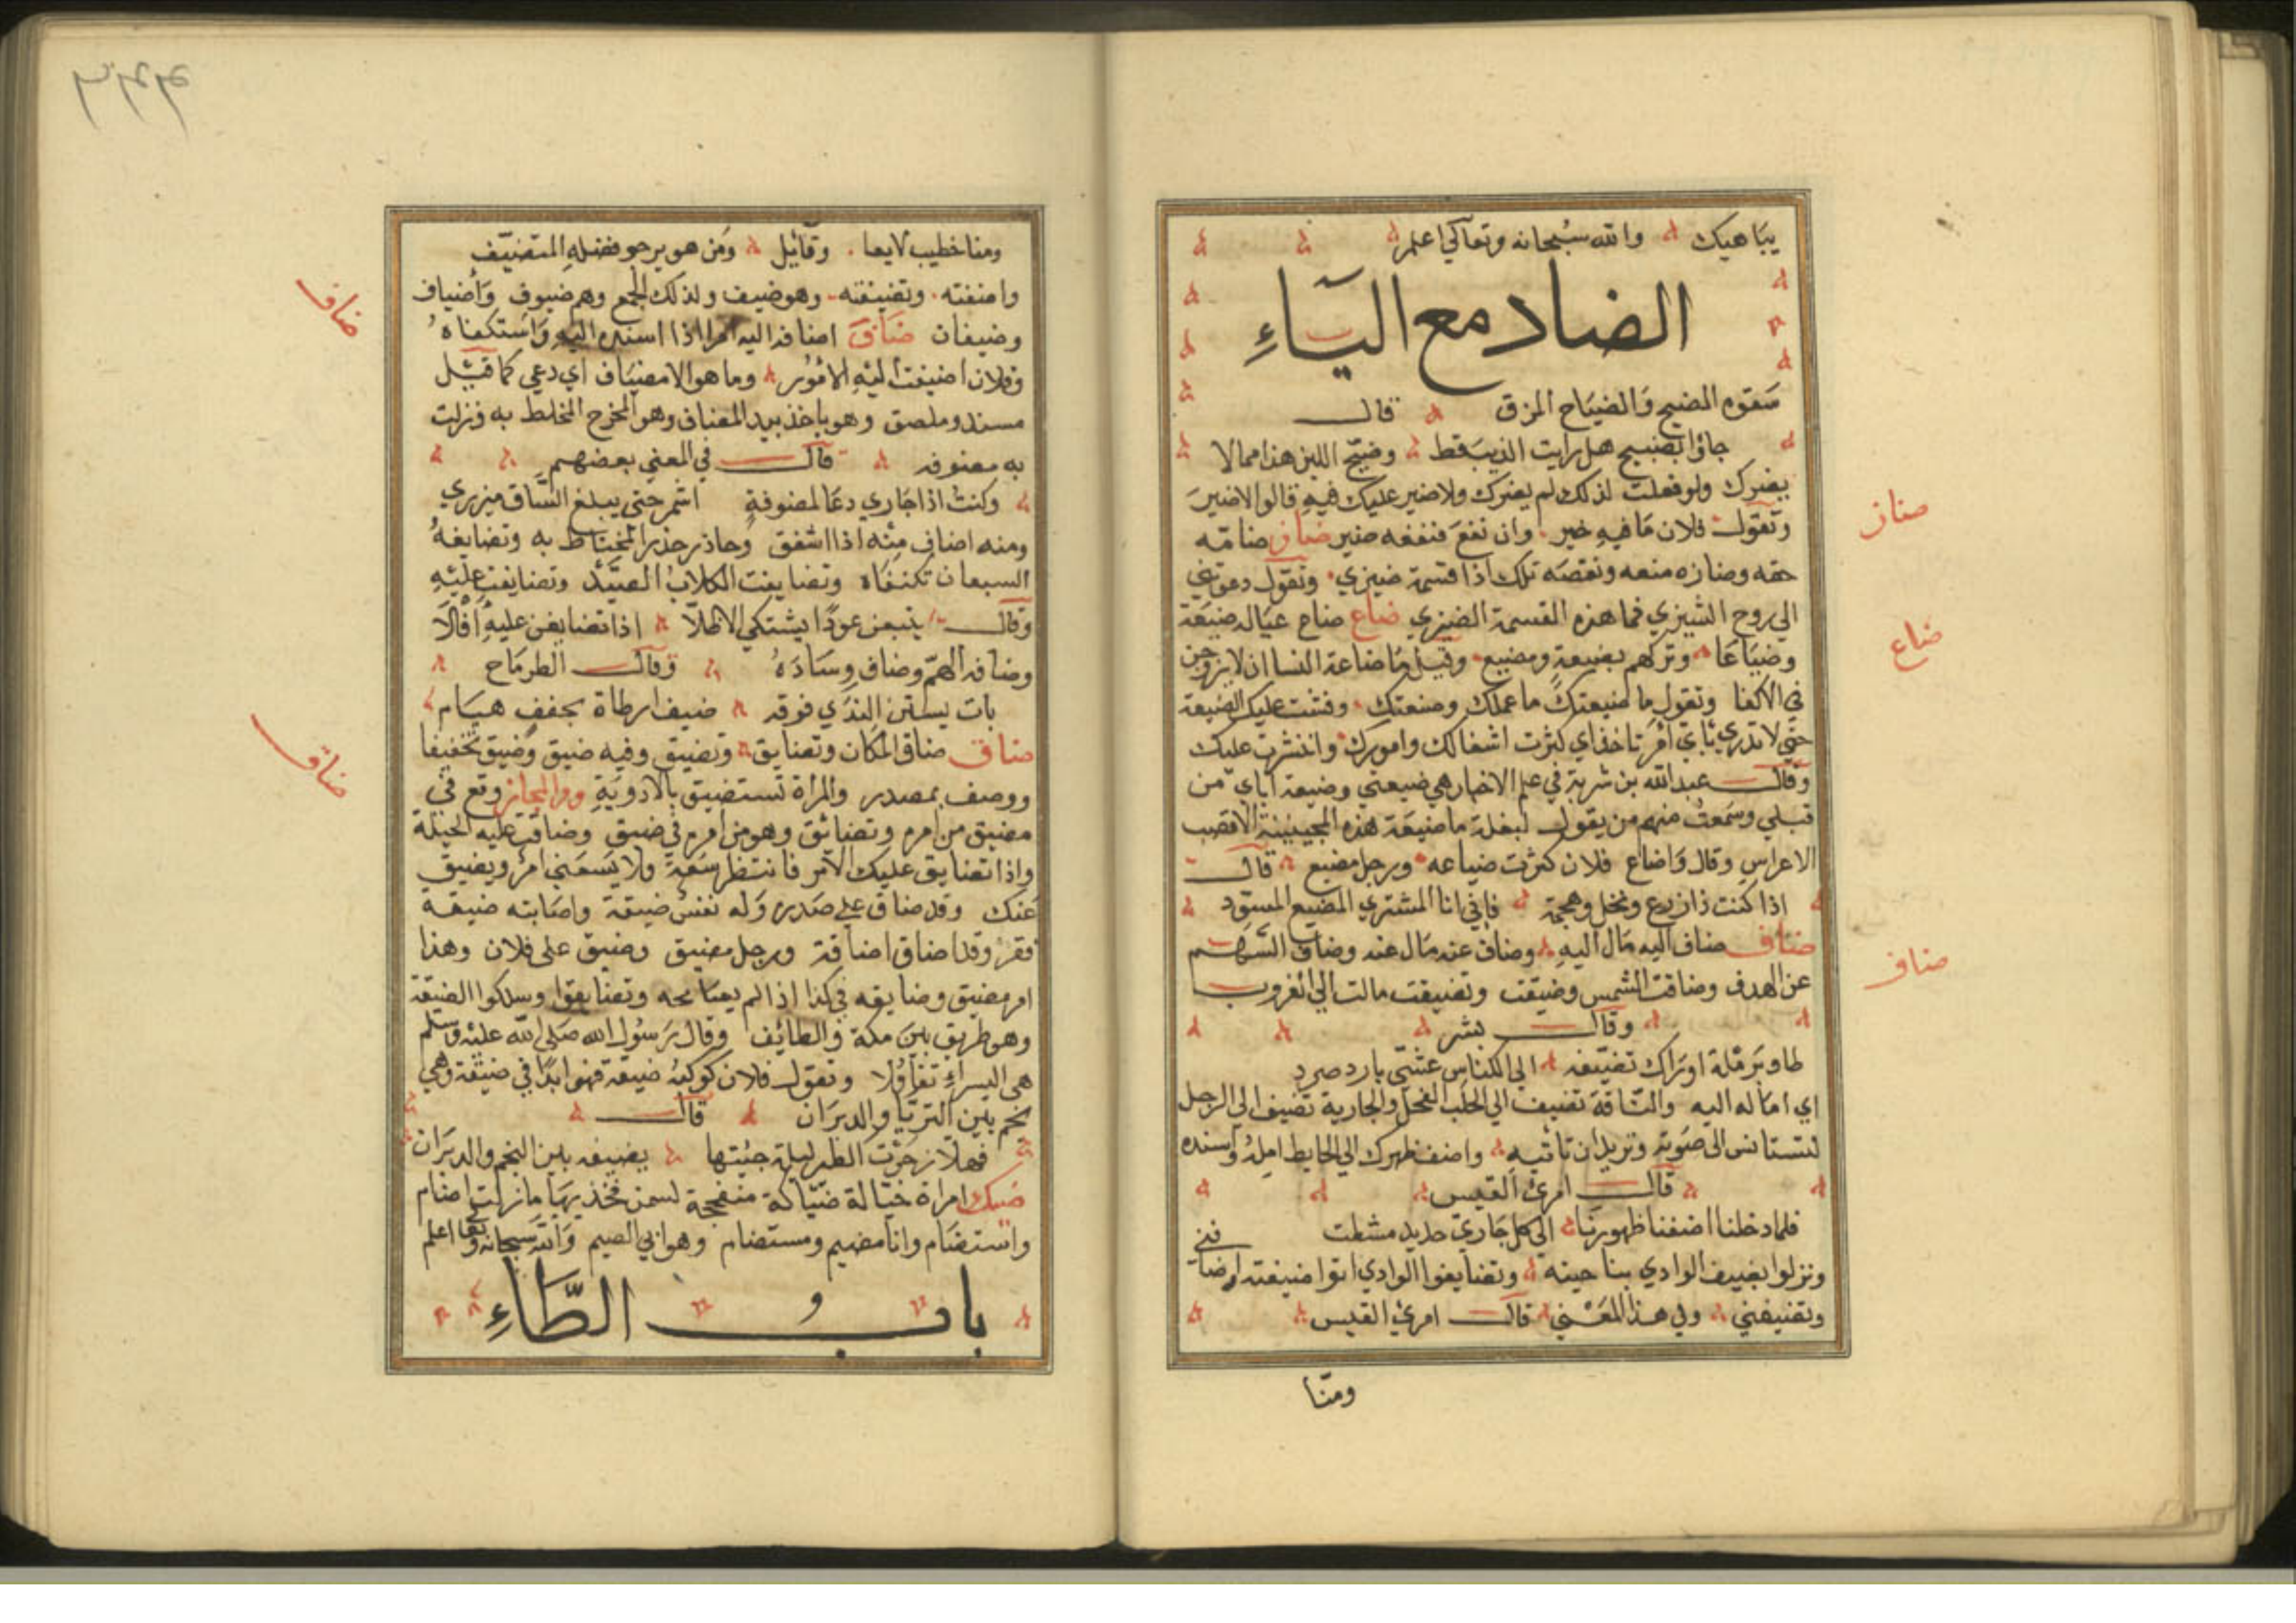 يباهيك والله سبحانه وتعالى اعلم
الضاد مع الياء
سقوه المضيح والضياح المزق قال
جاؤا بضيح هل رايت الذيب قط وضيح اللبن هذا مما لا
يضيرك ولو فعلت لذلك لم يضرك ولا ضير عليك فيه قالوا لا ضير
وتقول فلان ما فيه خير وان نفع فنفعه ضير ضاز ضامه
حقه وضازه منعه ونقصه تلك اذا قسمة ضيزي وتقول دعوتني
الي روح الشيزي فما هذه القسمة الضيزي ضاع ضاع عياله ضيعة
وضياعا وتركهم بضيعة ومضيع وقيل ما ضاعة النسا ان لا يزوجن
في الاكفا وتقول ما ضيعتك ما عملك وصنعتك وفشت عليك الضيعة
حتي لا تدري باي امر تاخذ اي كثرت اشغالك وامورك وانتشرت عليك
وقال عبدالله بن شرية في علم الاخبار هي ضيعتي وضيعة اباي من
قبلي وسمعت منهم من يقول لبغلة ما ضيعة هذه الا قصب
الاعراس وقال واضاع فلان كثرت ضياعه ورجل مضيع قال
اذا كنت ذا زرع ونخل وهجمة فاني انا المشتري المضيع المسود
ضاف ضاف اليه مال اليه وضاف عنه مال عنه وضاف السهم
عن الهدف وضافت الشمس وضيفت وتضيفت مالت الي الغروب
وقال بشر
طاو برملة اورال تضيفه الي الكناس عشي بارد صرد
اي اماله اليه والناقة تضيف الي الحلب الفحل والجارية تضيف الي الرجل
لتستانس الى صوته وتريد ان تاتيه واضف ظهرك الي الحايط امله واسنده
قال امرئ القيس
فلما دخلنا اضفنا ظهورنا الى كل حاري حديد مشطب
ونزلوا بضيف الوادي بناحيته وتضايفوا الوادي اتوا ضيفته وضافني
وتضيفني ولي هذا المعني قال امرئ القيس
ومنا
ضاز
ضاع
ضاف
ومنا خطيب لا يعا وقائل ومن هو يرجو فضله المتضيف
واضفته وتضيفته وهو ضيف ولذلك الجمع وهم ضيوف واضياف
وضيفان ضاف اضافه اليه امرا اذا اسنده اليه واستكفاه
وفلان اضيفت اليه الامور وما هو الا مضياف اي دعي كما قيل
مسند وملصق وهو ياخذ بيد المضاف وهو المحرج المخلط به ونزلت
به مضوفه قال في المعني بعضهم
وكنت اذا جاري دعا لمضوفة اشمر حتي يبلغ الساق ميزري
ومنه اضاف منه اذا اشفق وحاذر حذر المحتاط به وتضايفه
السبعان تكنفاه وتضايفت الكلاب الصيد وتضايفت عليه
وقال يتبعن عودا يشتكي الاظلا اذا تضايفن عليه
وضافه الهم وضاف وساده وقال الطرماح
بات يستن الندي فوقه ضيف ارطاة بحقف هيام
ضاق ضاق المكان وتضايق وتضيق وفيه ضيق وضيق تخفيفا
ووصف بمصدر والمراة تستضيق بالادوية ومن المجاز وقع في
مضيق من امره وتضائق وهو من امره في ضيق وضاقت عليه الحيلة
واذا تضايق عليك الامر فانتظر سعة ولا يسعني امر ويضيق
عنك وقد ضاق علي صدره وله نفس ضيقة واصابته ضيقة
فقر وقد اضاق اضاقة ورجل مضيق وضيق على فلان وهذا
امر مضيق وضايقه في كذا اذا لم يسامحه وتضايقوا وسلكوا الضيقة
وهو طريق بين مكة والطائف وقال رسول الله صلى الله عليه وسلم
هي اليسراء تفاؤلا وتقول فلان كوكبه ضيقة فهو ابدا في ضيقة وهي
نجم بين الثريا والدبران قال
فهلا زجرت الطير ليلة جئتها بضيقه بين النجم والدبران
ضيك امراة ختالة ضياكة متفحجة لسمن فخذيها ما زلت اضام
واستضام وانا مضيم ومستضام وهو ابي الضيم والله سبحانه وتعا اعلم
باب و الطاء
ضاف
ضاق